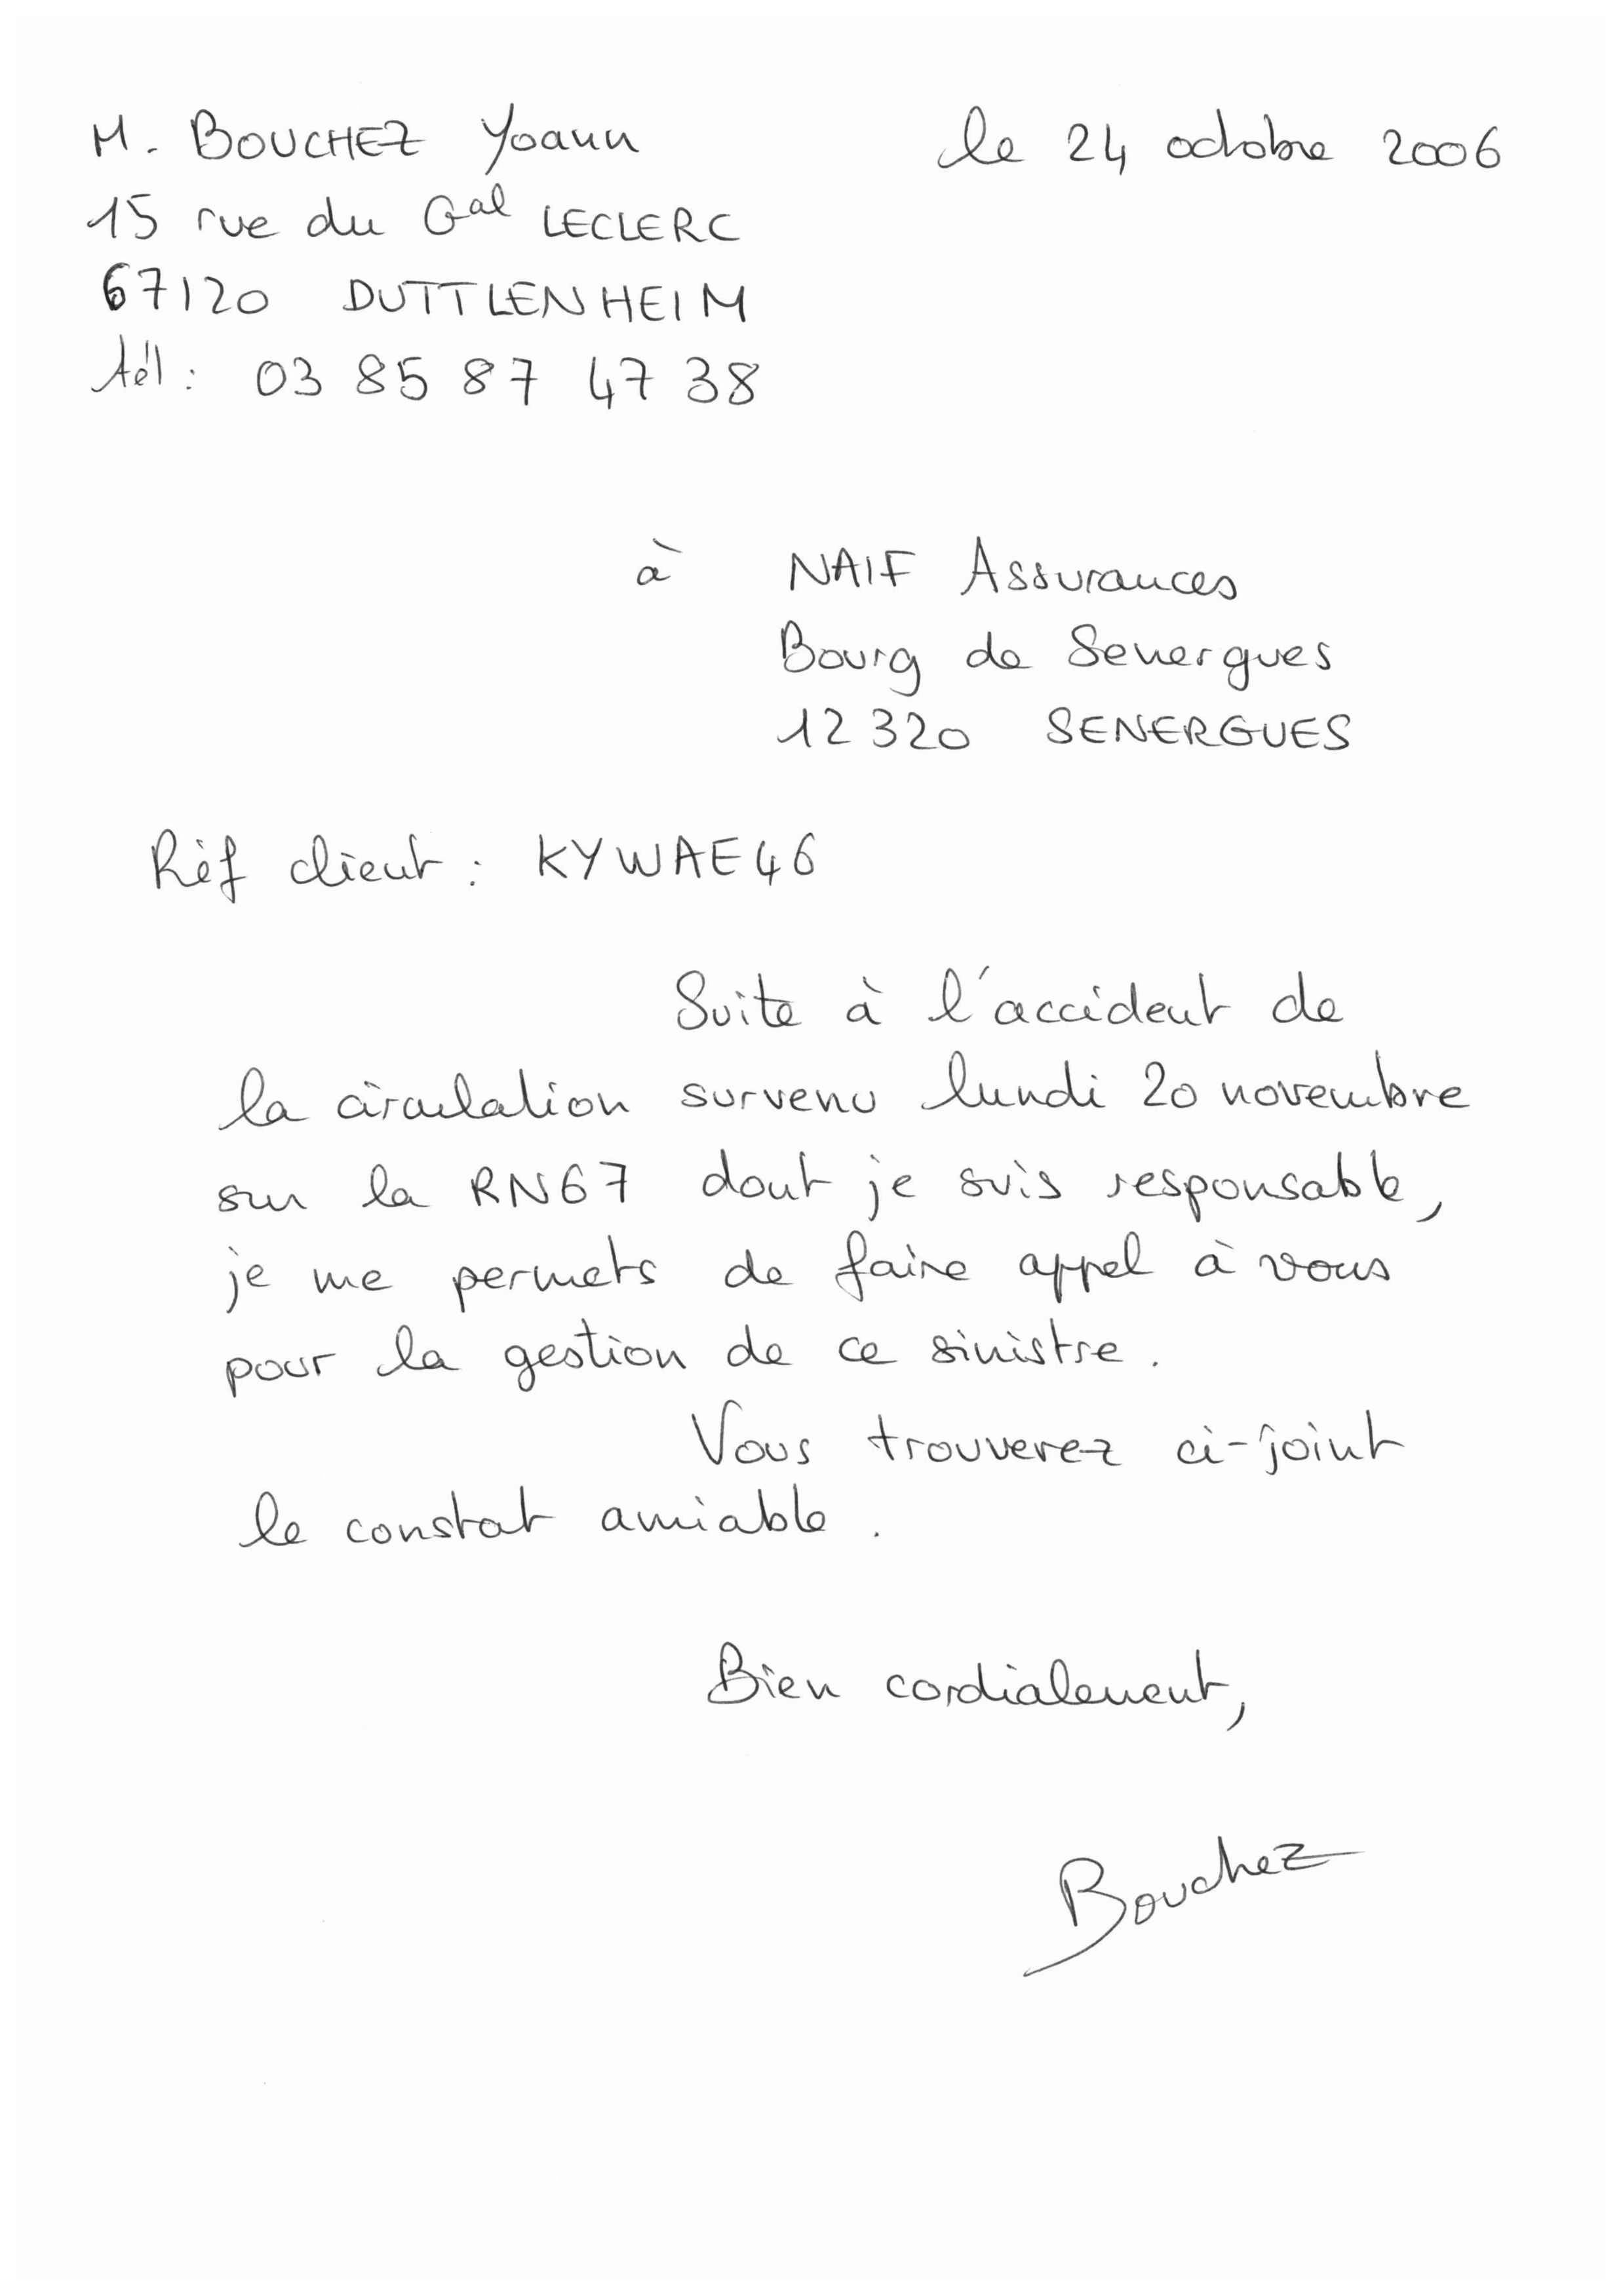 M. BOUCHEZ Yoann
le 24 octobre 2006
15 rue du Gal LECLERC
67120 DUTTLENHEIM
tél : 03 85 87 47 38
à NAIF Assurances
Bourg de Senergues
12320 SENERGUES
Réf client : KYWAE46
Suite à l'accident de
la circulation survenu lundi 20 novembre
sur la RN67 dont je suis responsable,
je me permets de faire appel à vous
pour la gestion de ce sinistre.
Vous trouverez ci-joint
le constat amiable.
Bien cordialement,
Bouchez